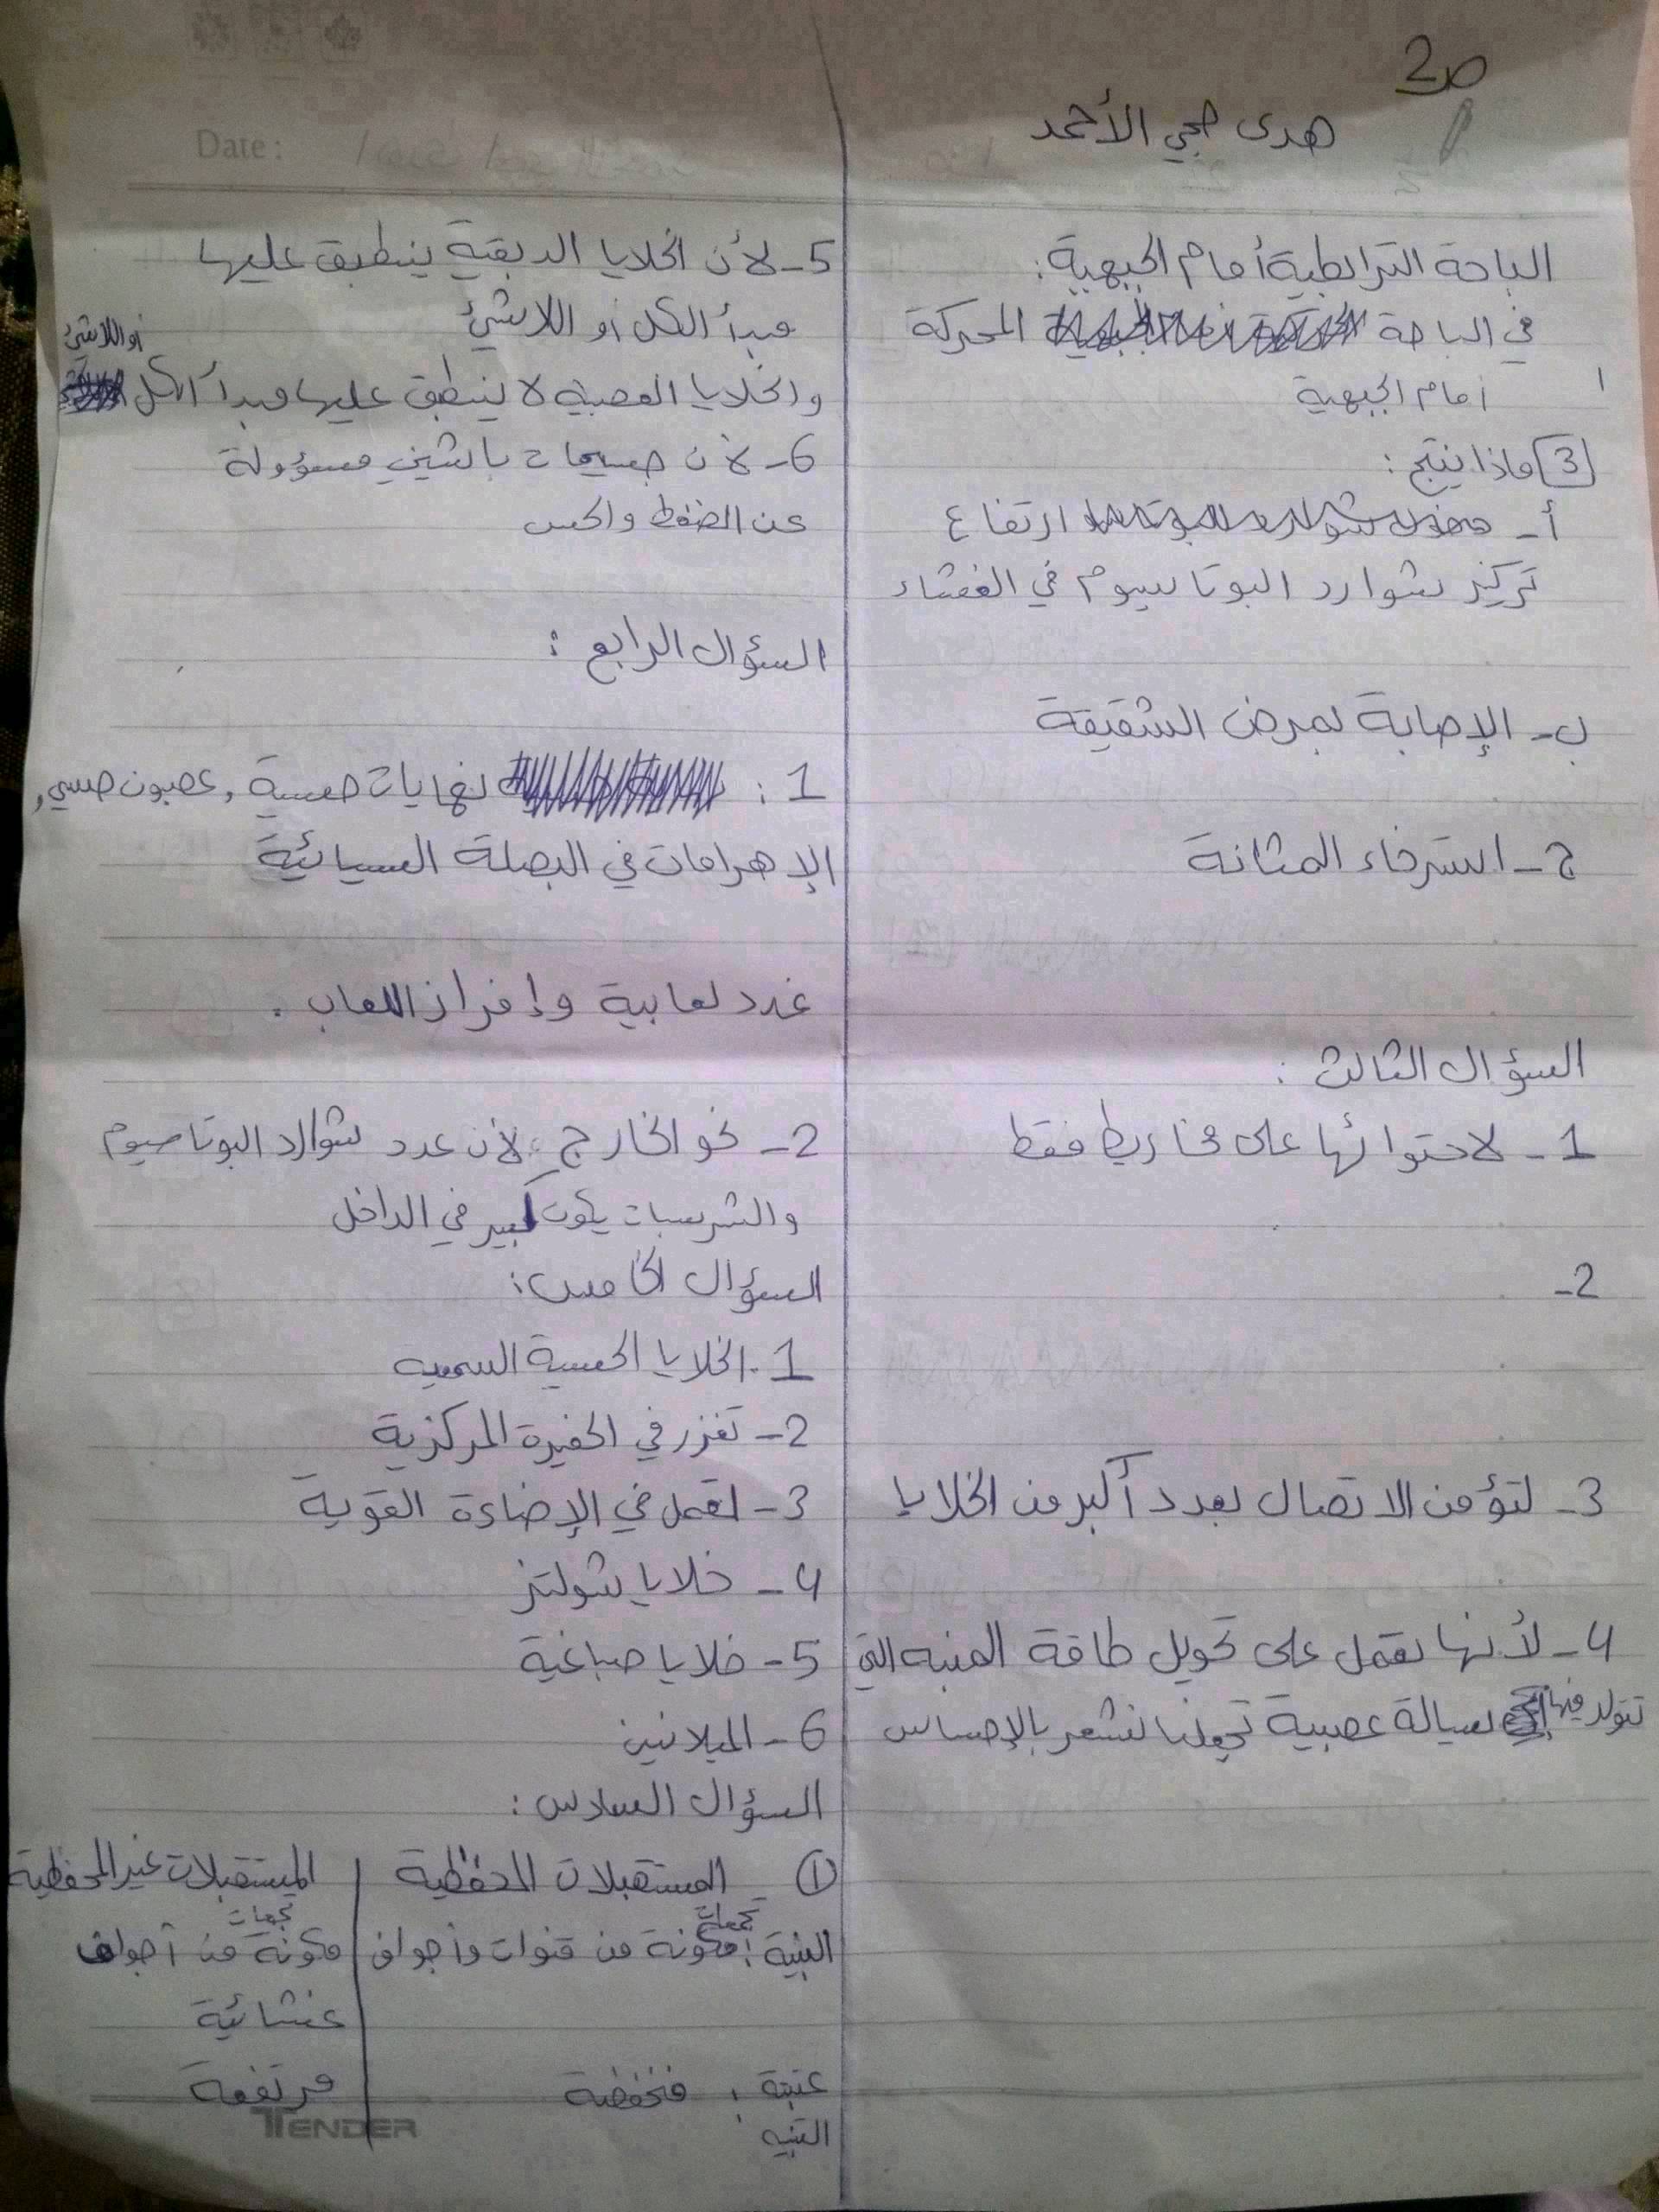 ص2
هدى حجي الأحمد
Date:
الباحة الترابطية أمام الجبهية:
في الباحة المحركة
أمام الجبهية
3 ماذا ينتج:
أ- ارتفاع
تركيز شوارد البوتاسيوم في الغشاء
ب- الإصابة بمرض الشقيقة
ج- استرخاء المثانة
السؤال الثالث:
1- لاحتوائها على مخاريط فقط
2-
3- لتؤمن الاتصال بعدد أكبر من الخلايا
4- لأنها تعمل على تحويل طاقة المنبه التي
تتولد فيها سيالة عصبية تجعلنا نشعر بالإحساس
5- لأن الخلايا الدبقية ينطبق عليها
مبدأ الكل أو اللاشيئ
والخلايا العصبية لا ينطبق عليها مبدأ الكل أو اللاشيئ
6- لأن جسيمات باشيني مسؤولة
عن الضغط والحس
السؤال الرابع:
1: نهايات حسية, عصبون حسي,
الإهرامات في البصلة السيسائية
غدد لعابية وإفراز اللعاب.
2- نحو الخارج لأن عدد شوارد البوتاسيوم
والشرسبات يكون كبير في الداخل
السؤال الخامس:
1. الخلايا الحسية السمعيه
2- تغزر في الحفيرة المركزية
3- تعمل في الإضاءة القوية
4- خلايا شولتز
5- خلايا صباغية
6- الميلانين
السؤال السادس:
1 - المستقبلات المحفظية | المستقبلات غير المحفظية
البنية: تجمعات مكونة من قنوات وأجواف | تجمعات مكونة من أجواف
غشائية
عتبة: منخفضة | مرتفعة
التنبيه
TENDER